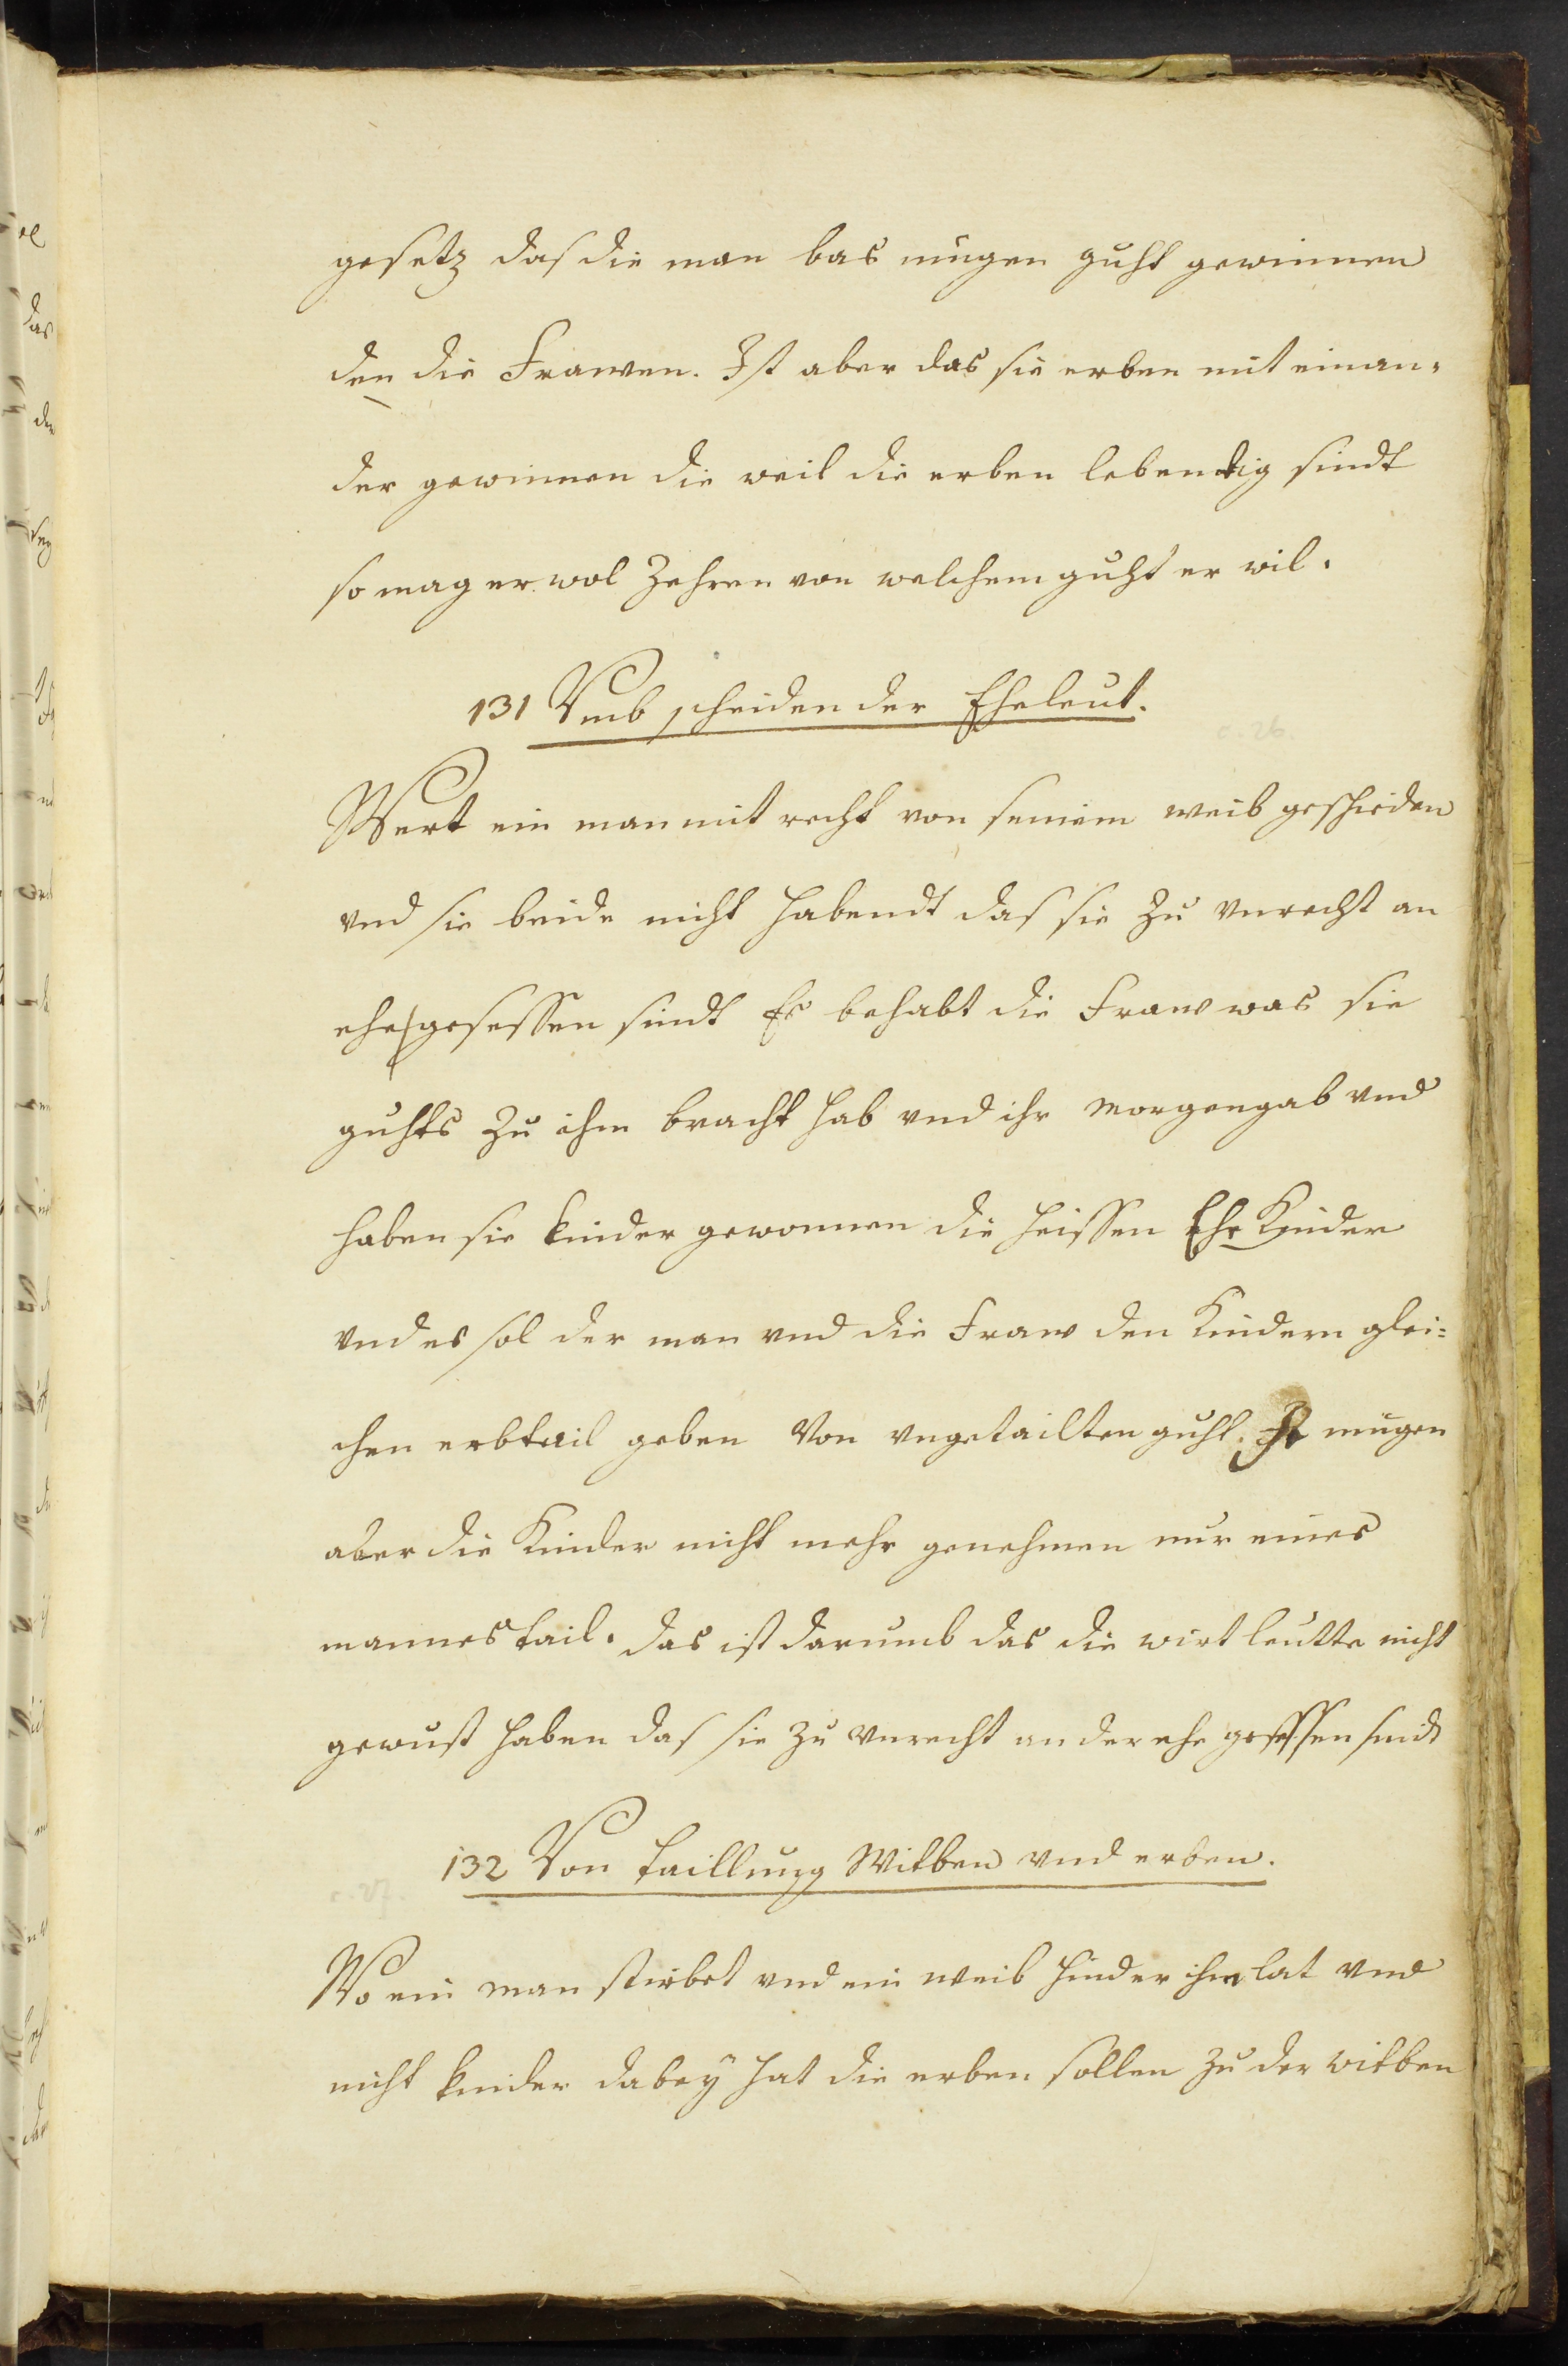 gesetz das die man bas mügen guht gewinnen
den die Frawen. Ist aber das sie erben mit einan-
der gewinnen die weil die erben lebendig sindt
so mag er wol Zehren von welchem guht er wil.
131 Vmb scheiden der Eheleut.
c. 26.
Wert ein man mit recht von seinem weib geschieden
vnd sie beide nicht habendt das sie zu vnrecht an
ehe gesessen sindt Es behabt die Fraw was sie
guhts zu ihm bracht hab vnd ihr Morgengab vnd
haben sie kinder gewonnen die heissen Ehe Kinder
vnd es sol der man vnd die Fraw den Kindern glei=
chen erbtail geben Von vngetailten guht. mügen
aber die Kinder nicht mehr genehmen nur eines
mannes tail. das ist darumb das die wirt leutte nicht
gewust haben das sie zu vnrecht an der ehe gesessen sindt
132 Von taillung Witben vnd erben.
c. 27.
Wo ein man stirbet vnd ein weib hinder ihm lat vnd
nicht kinder dabeÿ hat die erben sollen zu der witben